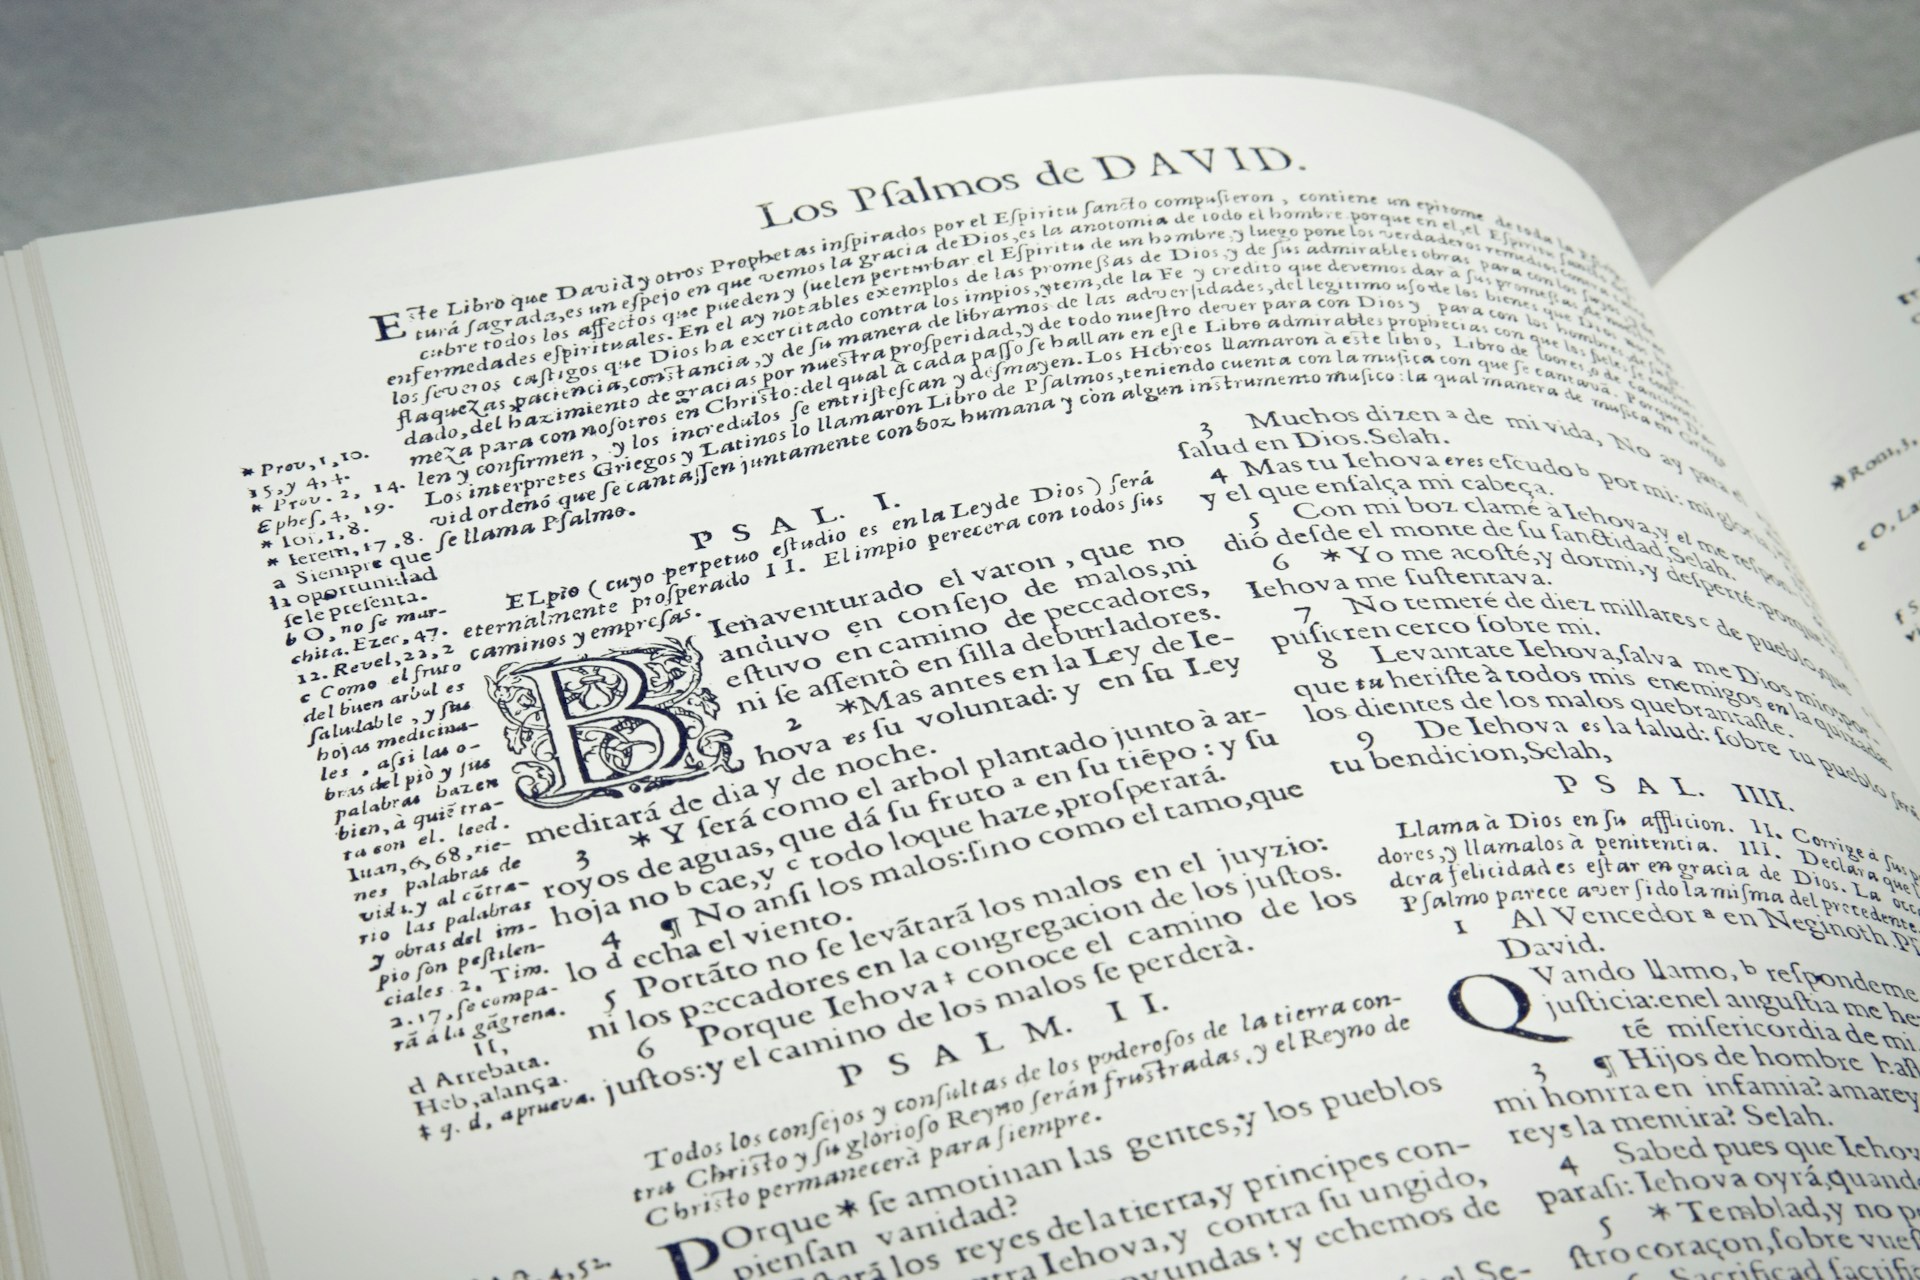 Los Pſalmos de DAVID.
Eſte Libro que David y otros Prophetas inſpirados por el Eſpiritu ſancto compuſieron, contiene un epitome de toda la
tura ſagrada, es un eſpejo en que vemos la gracia de Dios, es la anotomia de todo el hombre. porque en el, el Eſpiritu
cubre todos los affectos que pueden y ſuelen perturbar el Eſpiritu de un hombre, y luego pone los verdaderos remedios
enfermedades eſpirituales. En el ay notables exemplos de las promeſſas de Dios, y de ſus admirables obras para con
los ſeveros caſtigos que Dios ha exercitado contra los impios, ytem, de la Fe y credito que devemos dar à ſus promeſſas
flaquezas, paciencia, conſtancia, y de ſu manera de librarnos de las adverſidades, del legitimo uſo de los bienes que Dios
dado, del hazimiento de gracias por nueſtra proſperidad, y de todo nueſtro dever para con Dios y para con los hombres
meza para con noſotros en Chriſto: del qual à cada paſſo ſe hallan en eſte Libro admirables prophecias con que los fieles
len y confirmen, y los incredulos ſe entriſteſcan y deſmayen. Los Hebreos llamaron à eſte libro, Libro de loores, ò de
Los interpretes Griegos y Latinos lo llamaron Libro de Pſalmos, teniendo cuenta con la muſica con que ſe cantava. Porque
vid ordenó que ſe cantaſſen juntamente con boz humana y con algun inſtrumento muſico: la qual manera de muſica en Griego
ſe llama Pſalmo.
* Prov, 1, 10.
15, y 4, 4.
* Prov. 2, 14.
Epheſ, 4, 19.
* Ioſ, 1, 8.
* Ierem, 17, 8.
a Siempre que
la oportunidad
ſe le preſenta.
b O, no ſe mar-
chita. Ezec, 47.
12. Revel, 22, 2
c Como el fruto
del buen arbol es
ſaludable, y ſus
hojas medicina-
les, aſſi las o-
bras del piò y ſus
palabras hazen
bien, à quiẽ tra-
ta con el. leed.
Iuan, 6, 68, tie-
nes palabras de
vida. y al cõtra-
rio las palabras
y obras del im-
pio ſon peſtilen-
ciales 2, Tim.
2. 17, ſe compa-
rã á la gãgrena.
II,
d Arrebata.
Heb, alança.
‡ q. d, aprueva.
P S A L. I.
EL pio (cuyo perpetuo eſtudio es en la Ley de Dios) ſerá
eternalmente proſperado II. El impio perecera con todos ſus
caminos y empreſas.
BIenaventurado el varon, que no
anduvo en conſejo de malos, ni
eſtuvo en camino de peccadores,
ni ſe aſſentô en ſilla de burladores.
2 *Mas antes en la Ley de Ie-
hova es ſu voluntad: y en ſu Ley
meditará de dia y de noche.
3 * Y ſerá como el arbol plantado junto à ar-
royos de aguas, que dá ſu fruto a en ſu tiẽpo: y ſu
hoja no b cae, y c todo loque haze, proſperará.
4 ¶ No anſi los malos: ſino como el tamo, que
lo d echa el viento.
5 Portãto no ſe levãtarã los malos en el juyzio:
ni los peccadores en la congregacion de los juſtos.
6 Porque Iehova ‡ conoce el camino de los
juſtos: y el camino de los malos ſe perderà.
P S A L M. I I.
Todos los conſejos y conſultas de los poderoſos de la tierra con-
tra Chriſto y ſu glorioſo Reyno ſerán fruſtradas, y el Reyno de
Chriſto permanecerà para ſiempre.
POrque * ſe amotinan las gentes, y los pueblos
pienſan vanidad?
los reyes de la tierra, y principes con-
Iehova, y contra ſu ungido,
y echemos de
3 Muchos dizen a de mi vida, No ay para el
ſalud en Dios. Selah.
4 Mas tu Iehova eres eſcudo b por mi: mi gloria,
y el que enſalça mi cabeça.
5 Con mi boz clamé à Iehova, y el me reſpon
dió deſde el monte de ſu ſanctidad, Selah.
6 * Yo me acoſté, y dormi, y deſperté: porque
Iehova me ſuſtentava.
7 No temeré de diez millares c de pueblo, que
puſieren cerco ſobre mi.
8 Levantate Iehova, ſalva me Dios mio: porque
que tu heriſte à todos mis enemigos en la quixada:
los dientes de los malos quebrantaſte.
9 De Iehova es la ſalud: ſobre tu pueblo ſerá
tu bendicion, Selah,
P S A L. IIII.
Llama à Dios en ſu afflicion. II. Corrige à ſus
dores, y llamalos à penitencia. III. Declara que
dera felicidad es eſtar en gracia de Dios. La
Pſalmo parece aver ſido la miſma del precedente.
1 Al Vencedor a en Neginoth.
David.
QVando llamo, b reſpondeme
juſticia: enel anguſtia me
tẽ miſericordia de mi
3 ¶ Hijos de hombre
mi honrra en infamia? amarey
reys la mentira? Selah.
4 Sabed pues que Iehova
para ſi: Iehova oyrá, quando
5 * Temblad, y no
ſtro coraçon, ſobre
Sacrificad
* Rom, 3,